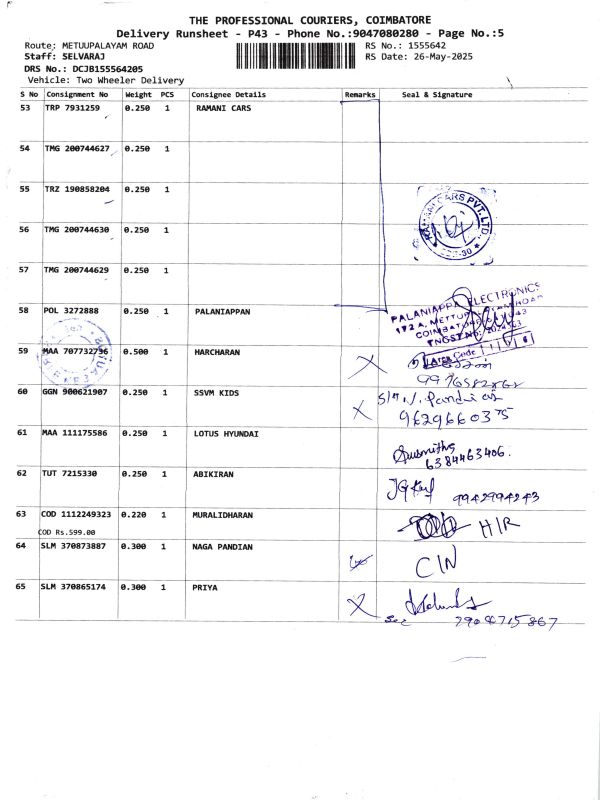 THE PROFESSIONAL COURIERS, COIMBATORE
Delivery Runsheet - P43 - Phone No.:9047080280 - Page No.:5
Route: METUUPALAYAM ROAD
RS No.: 1555642
Staff: SELVARAJ
RS Date: 26-May-2025
DRS No.: DCJB155564205
Vehicle: Two Wheeler Delivery
S No Consignment No Weight PCS Consignee Details Remarks Seal & Signature
53 TRP 7931259 0.250 1 RAMANI CARS
54 TMG 200744627 0.250 1
55 TRZ 190858204 0.250 1
56 TMG 200744630 0.250 1
57 TMG 200744629 0.250 1
58 POL 3272888 0.250 1 PALANIAPPAN
PALANIAPPA ELECTRONICS
59 MAA 707732796 0.500 1 HARCHARAN
60 GGN 900621907 0.250 1 SSVM KIDS
9629660375
61 MAA 111175586 0.250 1 LOTUS HYUNDAI
Susmitha
6384463406.
62 TUT 7215330 0.250 1 ABIKIRAN
9942994243
63 COD 1112249323 0.220 1 MURALIDHARAN
H/R
COD Rs.599.00
64 SLM 370873887 0.300 1 NAGA PANDIAN
C/N
65 SLM 370865174 0.300 1 PRIYA
7904715867